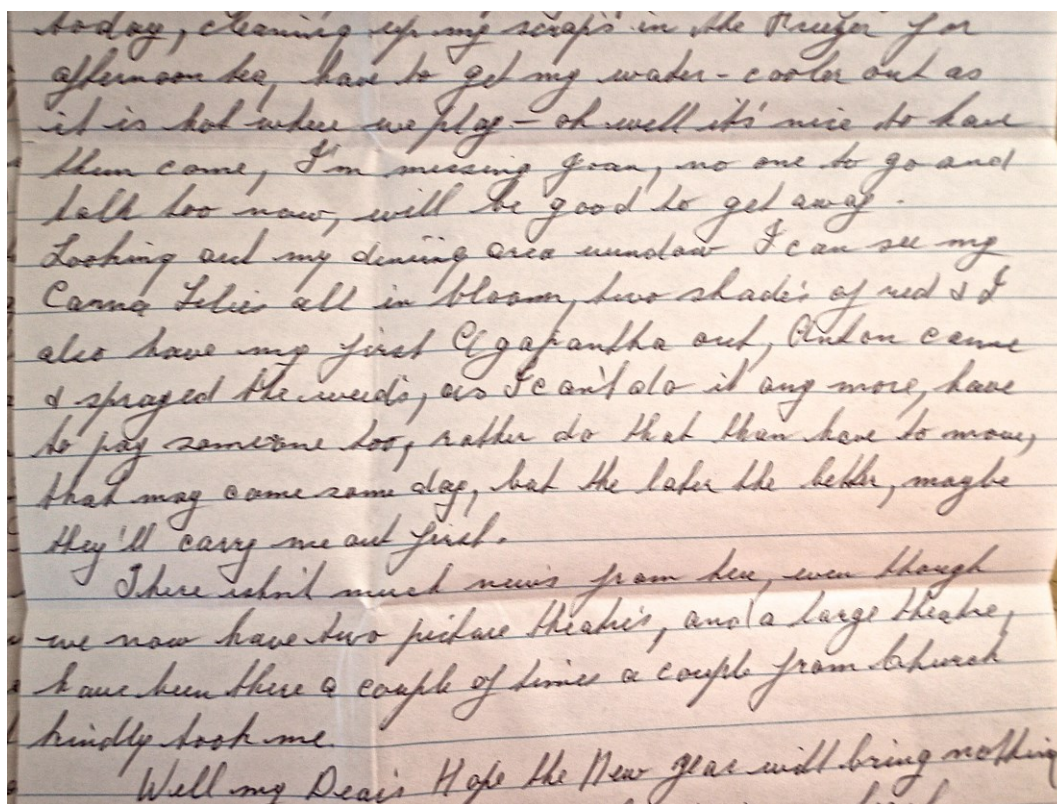 today, cleaning up my scraps in the Freezer for
afternoon tea, have to get my water-cooler out as
it is hot where we play - oh well it's nice to have
them come, I'm missing Joan, no one to go and
talk too now, will be good to get away.
Looking out my dining area window I can see my
Canna Lilies all in bloom, two shades of red & I
also have my first Agapantha out, Anton came
& sprayed the weeds, as I can't do it any more, have
to pay someone too, rather do that than have to move,
that may come some day, but the later the better, maybe
they'll carry me out first.
There isn't much news from here, even though
we now have two picture theatres, and a large theatre,
have been there a couple of times a couple from Church
kindly took me.
Well my Dears Hope the New Year will bring nothing